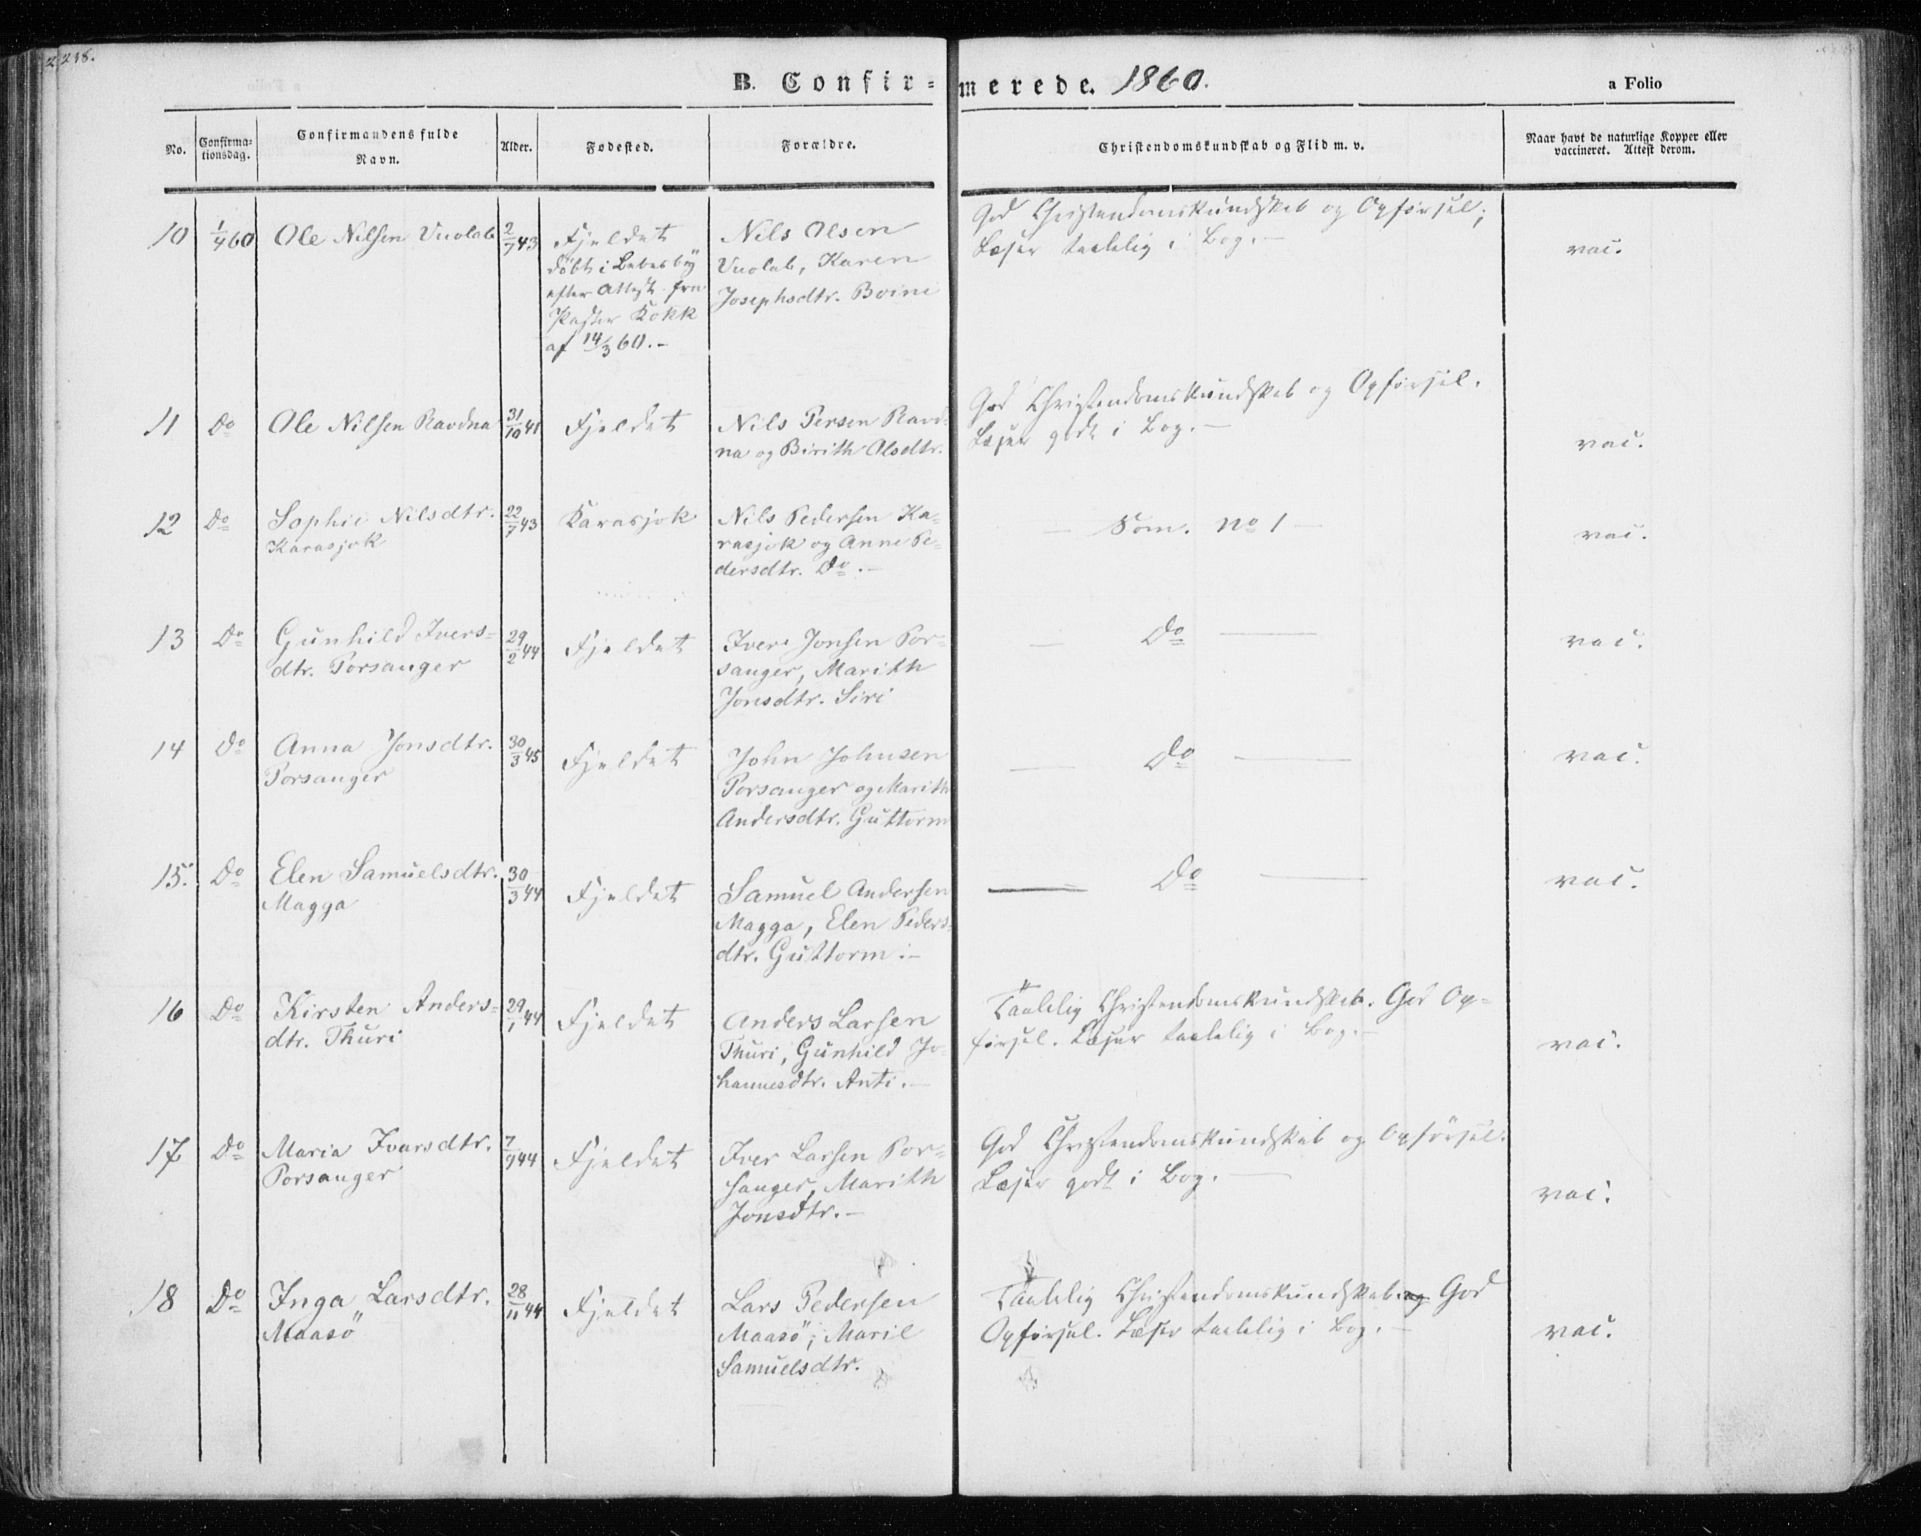 2218.
B. Confir=merede. 1860.
a Folio
No.
Confirma-
tionsdag.
Confirmandens fulde
Navn.
Alder.
Fødested.
Forældre.
Christendomskundskab og Flid m. v.
Naar havt de naturlige Kopper eller
vaccineret. Attest derom.
10 1/4 60 Ole Nilsen Vuolab 2/7 43
Fjeldet
döbt i Lebesby
efter Attest fra
Pastor Kokk
af 14/3 60.-
Nils Olsen
Vuolab, Karen
Josephsdtr. Boini
God Christendomskundskab og Opførsel;
Læser taalelig i Bog.-
vac.
11 Do Ole Nilsen Ravdna 31/10 41 Fjeldet
Nils Persen Ravd-
na og Birith Olsdtr.
God Christendomskundskab og Opførsel.
Læser godt i Bog.-
vac.
12 Do Sophie Nilsdtr.
Karasjok
22/7 43 Karasjok
Nils Pedersen Ka-
rasjok og Anne Pe-
dersdtr. Do.-
- Som No 1 -
vac.
13 Do Gunhild Ivers-
dtr. Porsanger
29/2 44 Fjeldet
Iver Jonsen Por-
sanger, Marith
Jonsdtr. Siri
- Do -
vac.
14 Do Anna Jonsdtr.
Porsanger
30/3 45 Fjeldet
John Johnsen
Porsanger og Marith
Andersdtr. Guttorm
- Do -
vac.
15. Do Elen Samuelsdtr.
Magga
30/3 44 Fjeldet
Samuel Andersen
Magga, Elen Peders-
dtr. Guttorm.-
- Do -
vac.
16 Do Kirsten Anders-
dtr. Thuri
29/1 44 Fjeldet
Anders Larsen
Thuri, Gunhild Jo-
hannesdtr. Anti.-
Taalelig Christendomskundskab. God Op-
førsel. Læser taalelig i Bog.-
vac.
17 Do Maria Ivarsdtr.
Porsanger
7/9 44 Fjeldet
Iver Larsen Por-
sanger, Marith
Jonsdtr.-
God Christendomskundskab og Opførsel.
Læser godt i Bog.-
vac.
18 Do Inga Larsdtr.
Maasö
28/11 44 Fjeldet
Lars Pedersen
Maasö, Maril
Samuelsdtr.
Taalelig Christendomskundskab og God
Opførsel. Læser taalelig i Bog.-
vac.